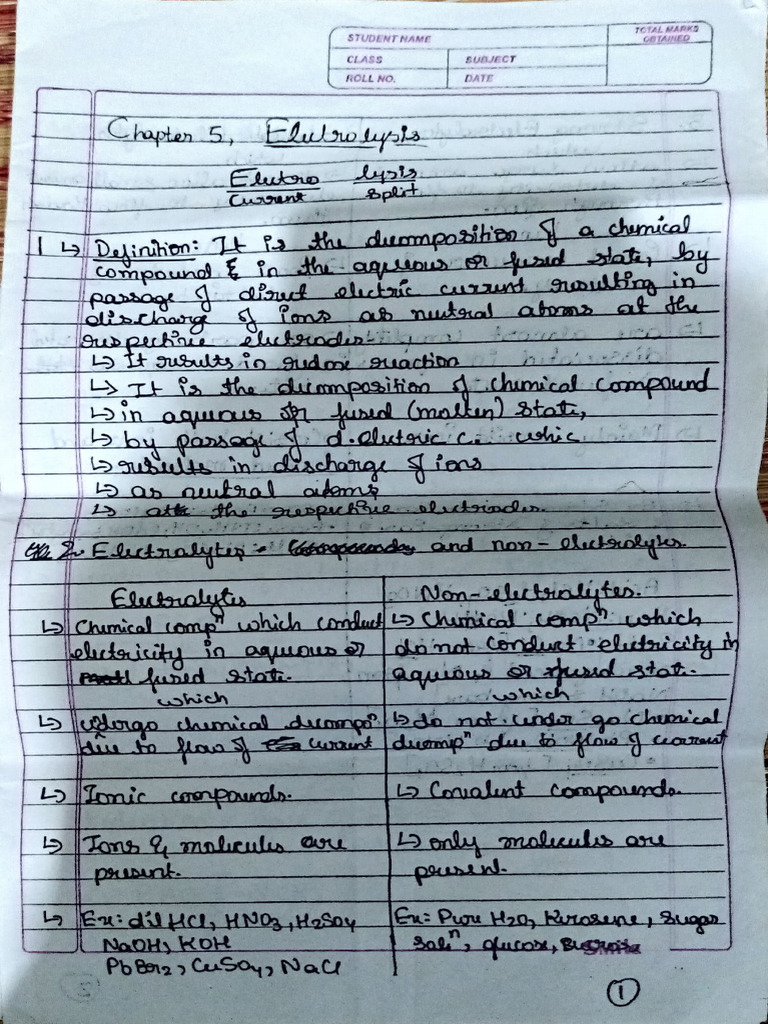 STUDENT NAME
TOTAL MARKS OBTAINED
CLASS SUBJECT
ROLL NO. DATE
Chapter 5, Electrolysis
Electro lysis
Current split
1 ↳ Definition: It is the decomposition of a chemical
compound & in the aqueous or fused state, by
passage of direct electric current resulting in
discharge of ions as neutral atoms at the
respective electrodes.
↳ It results in redox reaction
↳ It is the decomposition of chemical compound
↳ in aqueous or fused (molten) state,
↳ by passage of d. electric c. whic
↳ results in discharge of ions
↳ as neutral atoms
↳ at the respective electrodes.
2. Electralytes - and non-electrolytes.
Electralytes Non-electralytes.
↳ Chemical compⁿ which conduct ↳ Chemical compⁿ which
electricity in aqueous or do not conduct electricity in
fused state. aqueous or fused state.
which which
↳ undergo chemical decompⁿ ↳ do not under go chemical
due to flow of current decompⁿ due to flow of current
↳ Ionic compounds. ↳ Covalent compounds.
↳ Ions & molecules are ↳ only molecules are
present. present.
↳ Ex: dil HCl, HNO3, H2SO4 Ex: Pure H2O, Kerosene, sugar
NaOH, KOH solⁿ, glucose,
PbBr2, CuSO4, NaCl
1